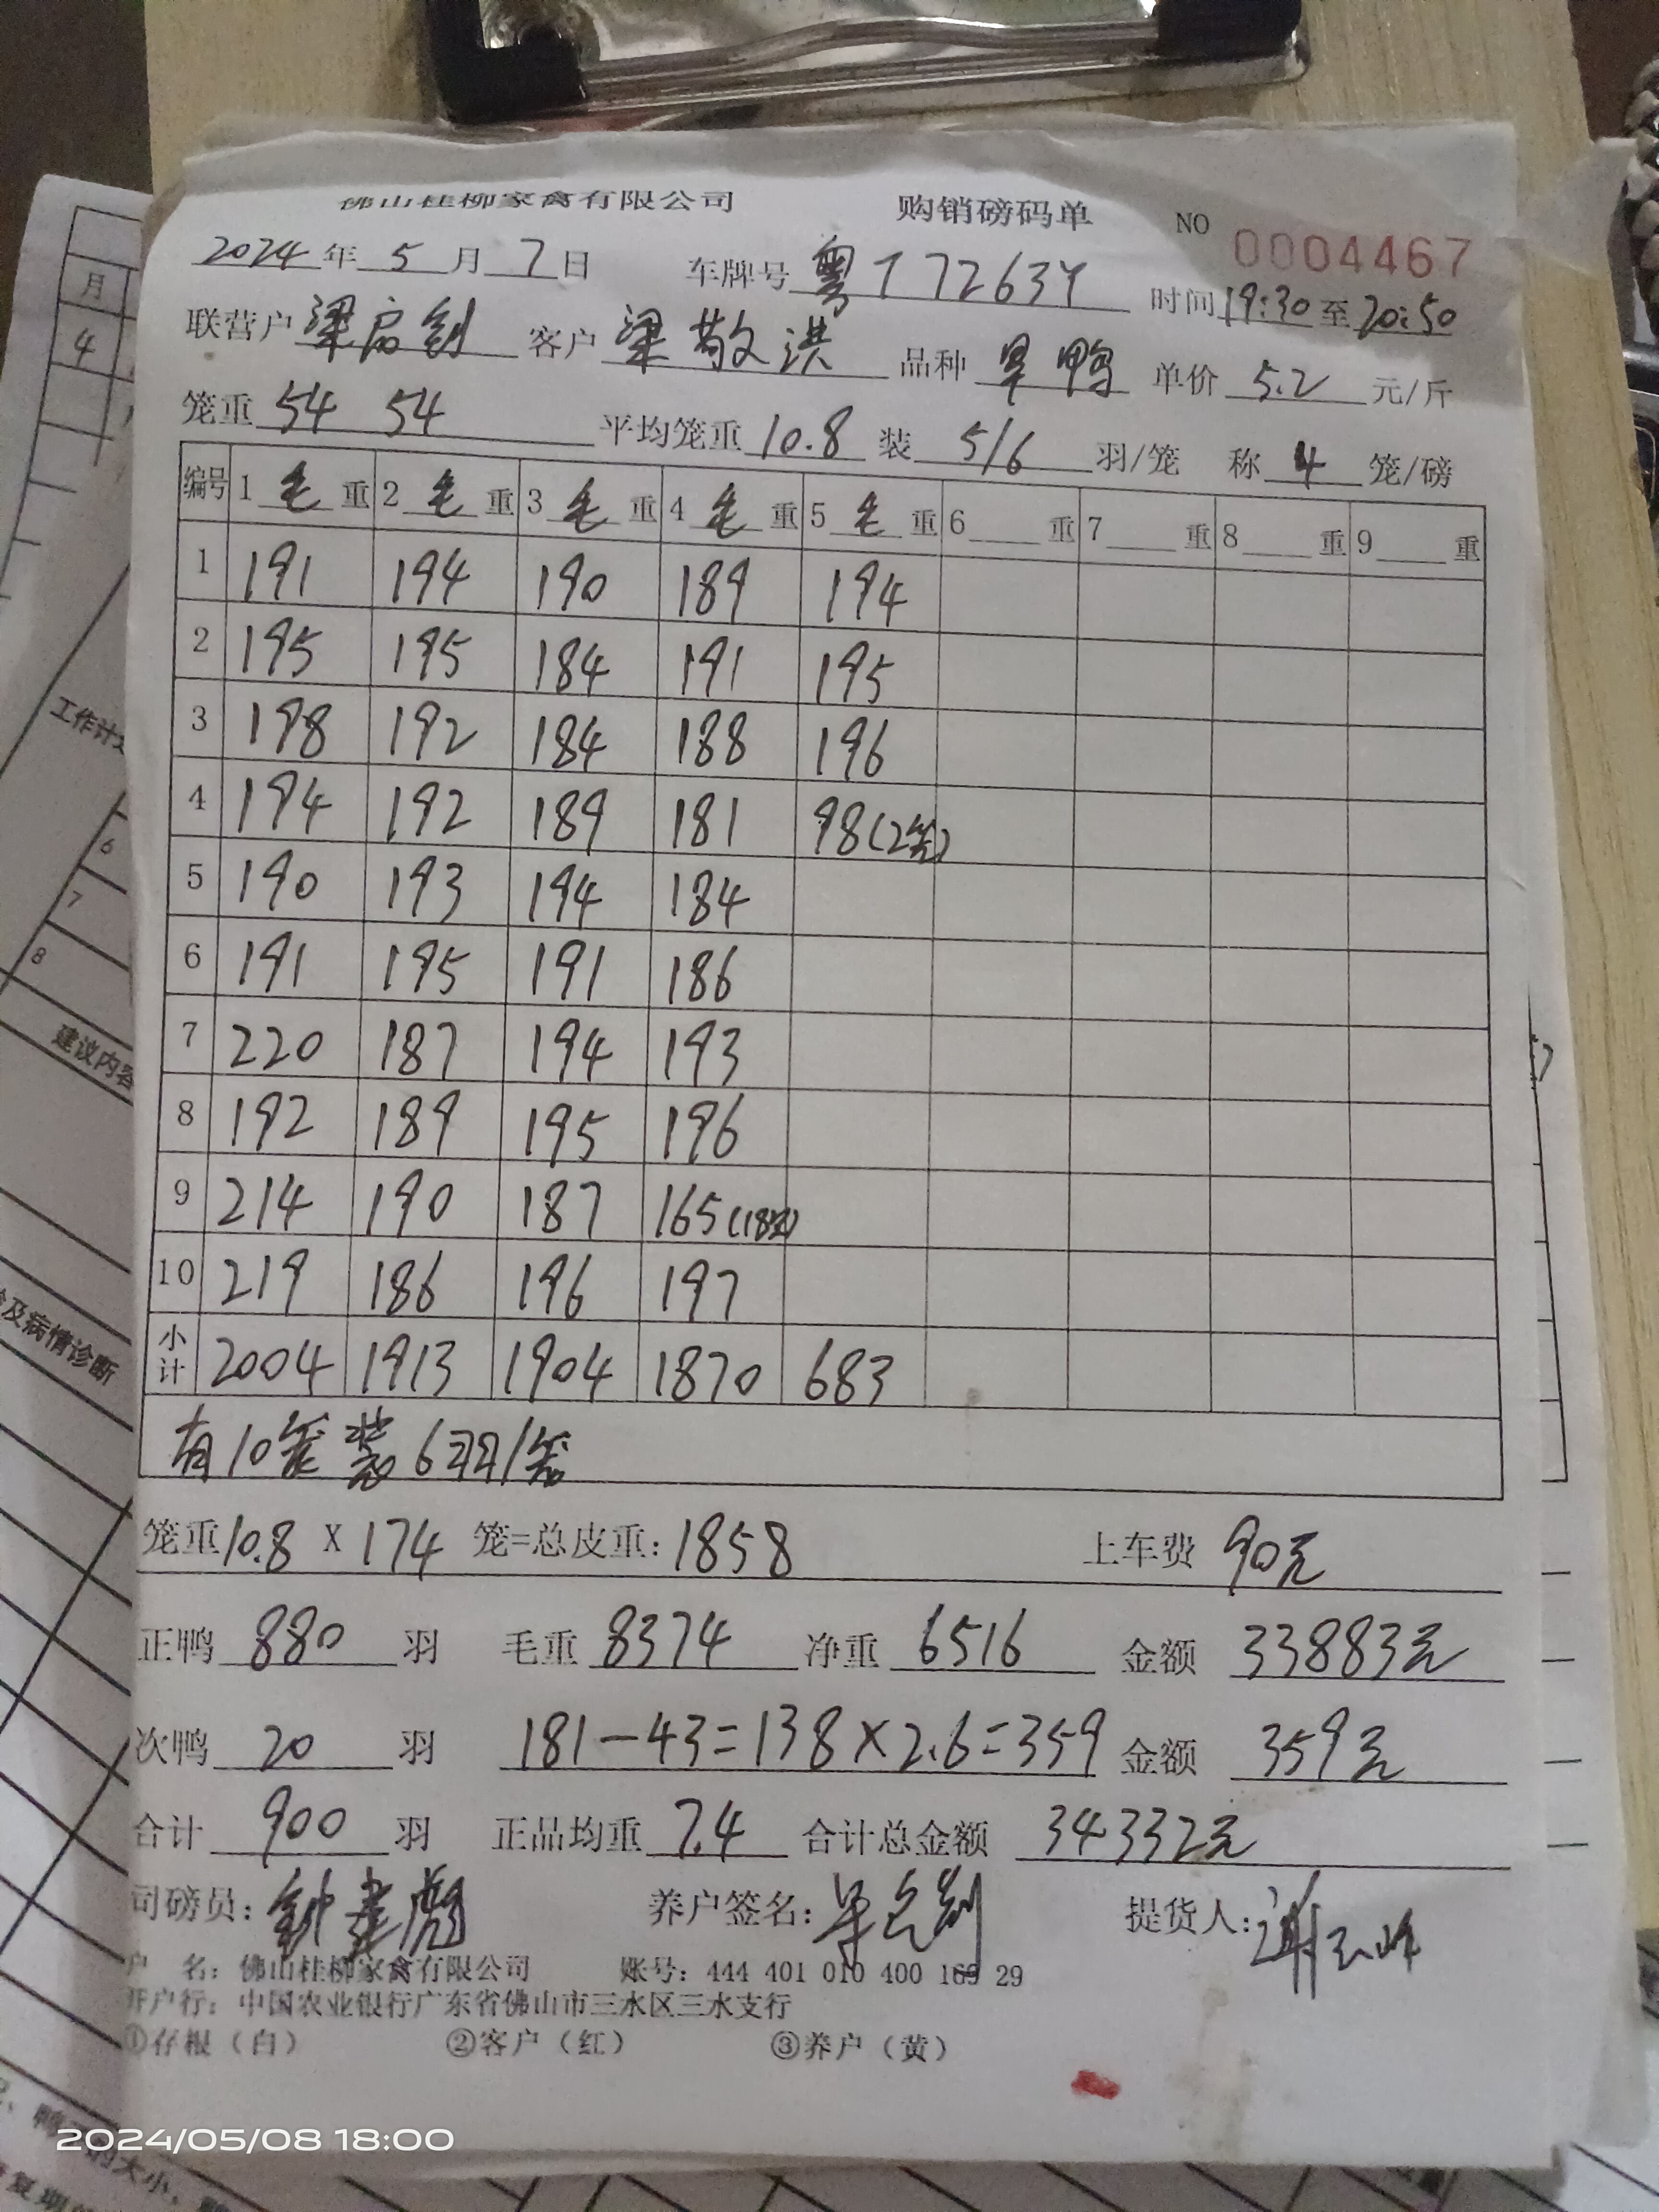 佛山桂柳家禽有限公司 购销磅码单 NO 0004467
2024年 5月 7日 车牌号 粤T7263Y 时间 19:30 至 20:50
联营户 梁启钊 客户 梁敬洪 品种 旱鸭 单价 5.2 元/斤
笼重 54 54 平均笼重 10.8 装 5/6 羽/笼 称 4 笼/磅
编号 1 毛 重 2 毛 重 3 毛 重 4 毛 重 5 毛 重 6 重 7 重 8 重 9 重
1 191 194 190 189 194
2 195 195 184 191 195
3 198 192 184 188 196
4 194 192 189 181 98(2笼)
5 190 193 194 184
6 191 195 191 186
7 220 187 194 193
8 192 189 195 196
9 214 190 187 165(18羽)
10 219 186 196 197
小计 2004 1913 1904 1870 683
有10笼装6羽/笼
笼重 10.8 X 174 笼=总皮重: 1858 上车费 90元
正鸭 880 羽 毛重 8374 净重 6516 金额 33883元
次鸭 20 羽 181-43=138×2.6=359 金额 359元
合计 900 羽 正品均重 7.4 合计总金额 34332元
司磅员: 钟 养户签名: 提货人: 谢
户 名: 佛山桂柳家禽有限公司 账号: 444 401 010 400 169 29
开户行: 中国农业银行广东省佛山市三水区三水支行
①存根（白） ②客户（红） ③养户（黄）
月
4
工作计
6
7
8
建议内容
及病情诊断
2024/05/08 18:00